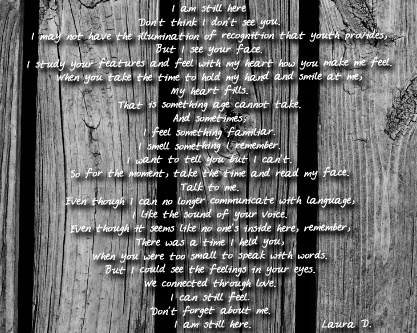 I am still here
Don't think I don't see you.
I may not have the illumination of recognition that youth provides,
But I see your face.
I study your features and feel with my heart how you make me feel.
When you take the time to hold my hand and smile at me,
My heart fills.
That is something age cannot take.
And sometimes,
I feel something familiar.
I smell something I remember.
I want to tell you but I can't.
So for the moment, take the time and read my face.
Talk to me.
Even though I can no longer communicate with language,
I like the sound of your voice.
Even though it seems like no one's inside here, remember,
There was a time I held you,
When you were too small to speak with words.
But I could see the feelings in your eyes.
We connected through love.
I can still feel.
Don't forget about me.
I am still here. Laura D.